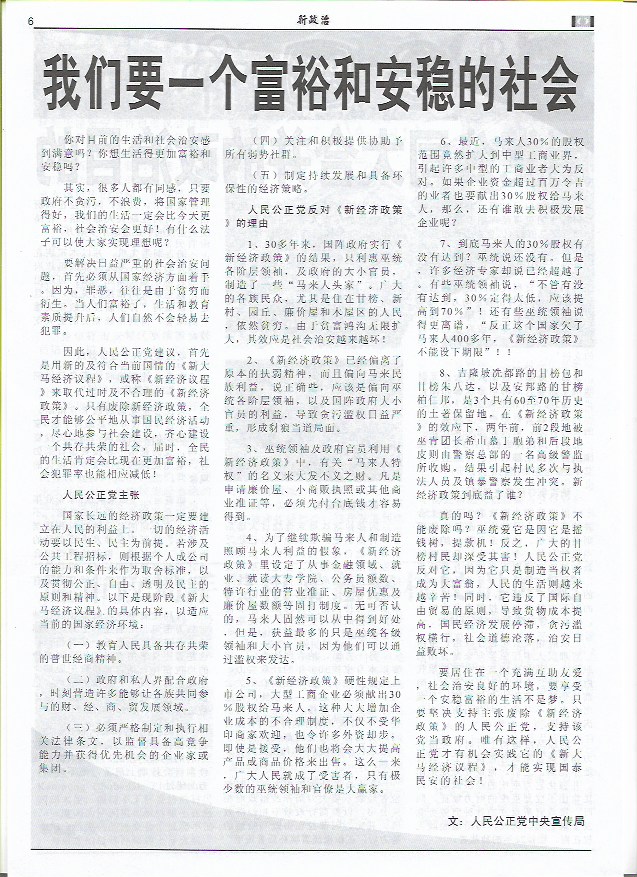 6
新政治
我们要一个富裕和安稳的社会
你对目前的生活和社会治安感
到满意吗？你想生活得更加富裕和
安稳吗？
其实，很多人都有同感，只要
政府不贪污，不浪费，将国家管理
得好，我们的生活一定会比今天更
富裕，社会治安会更好！有什么法
子可以使大家实现理想呢？
要解决日益严重的社会治安问
题，首先必须从国家经济方面着手
。因为，罪恶，往往是由于贫穷而
衍生。当人们富裕了，生活和教育
素质提升后，人们自然不会轻易去
犯罪。
因此，人民公正党建议，首先
是用新的及符合当前国情的《新大
马经济议程》，或称《新经济议程
》来取代过时及不合理的《新经济
政策》。只有废除新经济政策，全
民才能够公平地从事国民经济活动
，尽心地参与社会建设，齐心建设
一个共存共荣的社会，届时，全民
的生活肯定会比现在更加富裕，社
会犯罪率也能相应减低！
人民公正党主张
国家长远的经济政策一定要建
立在人民的利益上。一切的经济活
动要以民生、民主为前提。若涉及
公共工程招标，则根据个人或公司
的能力和条件来作为取舍标准，以
及贯彻公正、自由、透明及民主的
原则和精神。以下是现阶段《新大
马经济议程》的具体内容，以适应
当前的国家经济环境：
（一）教育人民具备共存共荣
的普世经商精神。
（二）政府和私人界配合政府
，时刻营造许多能够让各族共同参
与的财、经、商、贸发展领域。
（三）必须严格制定和执行相
关法律条文，以监督具备高竞争
能力并获得优先机会的企业家或
集团。
（四）关注和积极提供协助予
所有弱势社群。
（五）制定持续发展和具备环
保性的经济策略。
人民公正党反对《新经济政策
》的理由
1、30多年来，国阵政府实行《
新经济政策》的结果，只利惠巫统
各阶层领袖，及政府的大小官员，
制造了一些“马来人头家”。广大
的各族民众，尤其是住在甘榜、新
村、园丘、廉价屋和木屋区的人民
，依然贫穷。由于贫富鸿沟无限扩
人，其效应是社会治安越来越坏！
2、《新经济政策》已经偏离了
原本的扶弱精神，而且偏向马来民
族利益，说正确些，应该是偏向巫
统各阶层领袖，以及国阵政府大小
官员的利益，导致贪污滥权日益严
重，形成豺狼当道局面。
3、巫统领袖及政府官员利用《
新经济政策》中，有关“马来人特
权”的名义来大发不义之财。凡是
申请廉价屋、小商贩执照或其他商
业准证等，必须先付台底钱才容易
得到。
4、为了继续欺骗马来人和制造
照顾马来人利益的假象，《新经济
政策》里设定了从事金融领域、就
业、就读大专学院、公务员额数、
特许行业的营业准证、房屋优惠及
廉价屋数额等固打制度。无可否认
的，马来人固然可以从中得到好处
，但是，获益最多的只是巫统各级
领袖和大小官员，因为他们可以通
过滥权来发达。
5、《新经济政策》硬性规定上
市公司，大型工商企业必须献出30
%股权给马来人，这种大大增加企
业成本的不合理制度，不仅不受华
印商家欢迎，也令许多外资却步，
即使是接受，他们也将会大大提高
产品或商品价格来出售。这么一来
，广大人民就成了受害者，只有极
少数的巫统领袖和官僚是大赢家。
6、最近，马来人30%的股权
范围竟然扩大到中型工商业界。
引起许多中型的工商业者大为反
对，如果企业资金超过百万令吉
的业者也要献出30%股权给马来
人，那么，还有谁敢去积极发展
企业呢？
7、到底马来人的30%股权有
没有达到？巫统说还没有。但是
，许多经济专家却说已经超越了
。有些巫统领袖说，“不管有没
有达到，30%定得人低，应该提
高到70%”！还有些巫统领袖说
得更离谱，“反正这个国家欠了
马来人400多年，《新经济政策》
不能设下期限”！！
8、吉隆坡冼都路的甘榜包和
甘榜朱八达，以及安邦路的甘榜
柏仁邦，是3个具有60至70年历史
的土著保留地，在《新经济政策
》的效应下，两年前，前2段地被
巫青团长希山慕丁胞弟和后段地
皮则由警察总部的一名高级警监
所收购。结果引起村民多次与执
法人员及镇暴警察发生冲突。新
经济政策到底益了谁？
真的吗？《新经济政策》不
能废除吗？巫统爱它是因它是摇
钱树，提款机！反之，广大的甘
榜村民却深受其害！人民公正党
反对它，因为它只是制造当权者
成为大富翁，人民的生活则越来
越辛苦！同时、它违反了国际自
由贸易的原则，导致货物成本提
高，国民经济发展停滞，贪污滥
权横行，社会道德沦落，治安日
益败坏。
要居住在一个充满互助友爱
，社会治安良好的环境，要享受
一个安稳富裕的生活不是梦，只
要坚决支持主张废除《新经济
政策》的人民公正党，支持该
党当政府。唯有这样，人民公
正党才有机会实践它的《新大
马经济议程》，才能实现国泰
民安的社会！
文：人民公正党中央宣传局